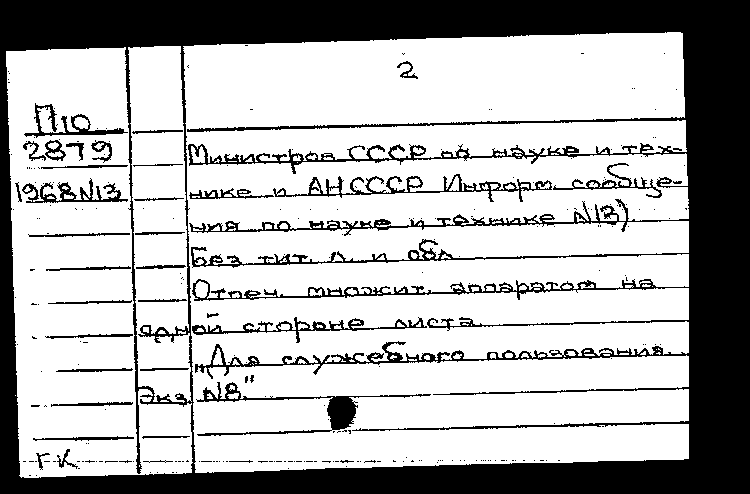 2
П10
2879
1968 N13
Министров СССР по науке и тех-
нике и АН СССР Информ. сообще-
ния по науке и технике N13).
Без тит. л. и обл
Отпеч. множит. аппаратом на
одной стороне листа.
„Для служебного пользования.
Экз. N8."
ГК